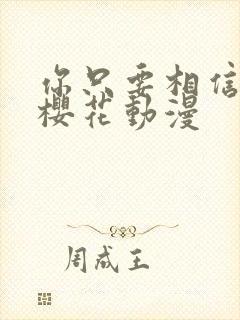 你只要相信
櫻花動漫
周成王